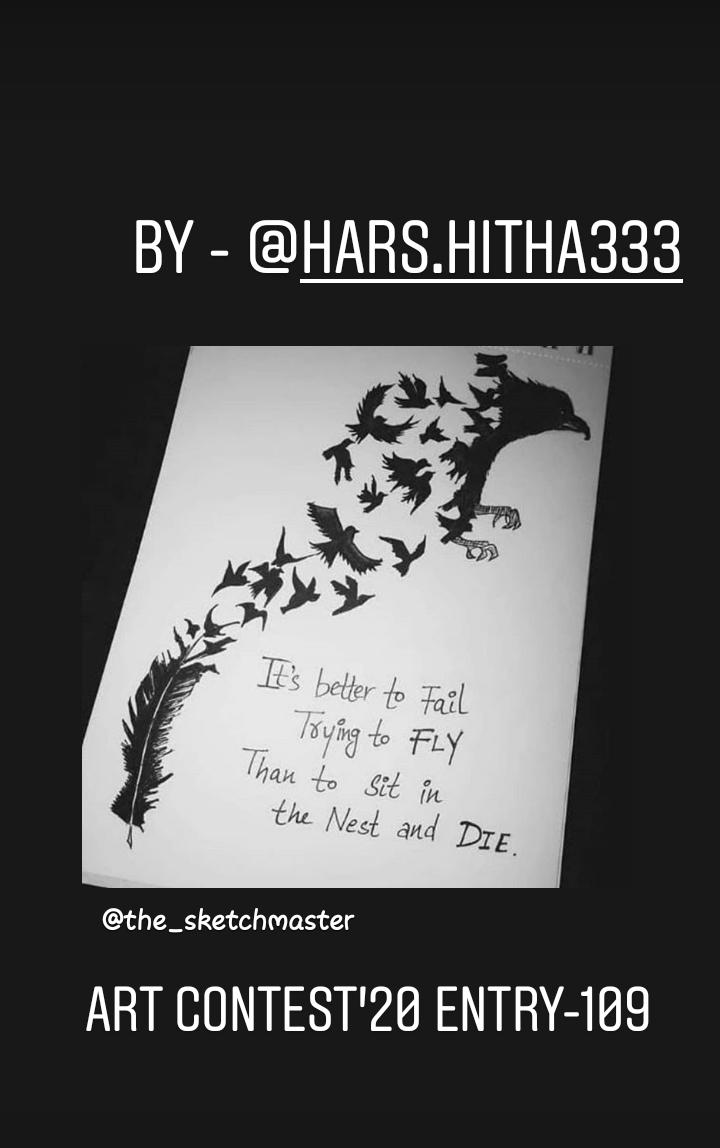 BY - @HARS.HITHA333
It's better to Fail
Trying to FLY
Than to sit in
the Nest and DIE.
@the_sketchmaster
ART CONTEST'20 ENTRY-109